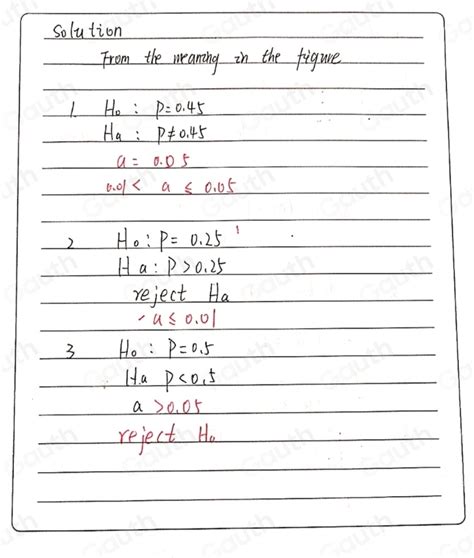 Solution
From the meaning in the figure
1. H₀ : P=0.45
Ha : P≠0.45
a = 0.05
0.01 < a ≤ 0.05
2 H₀ : P= 0.25
Ha : P>0.25
reject Ha
a ≤ 0.01
3 H₀ : P=0.5
Ha P<0.5
a >0.05
reject H₀